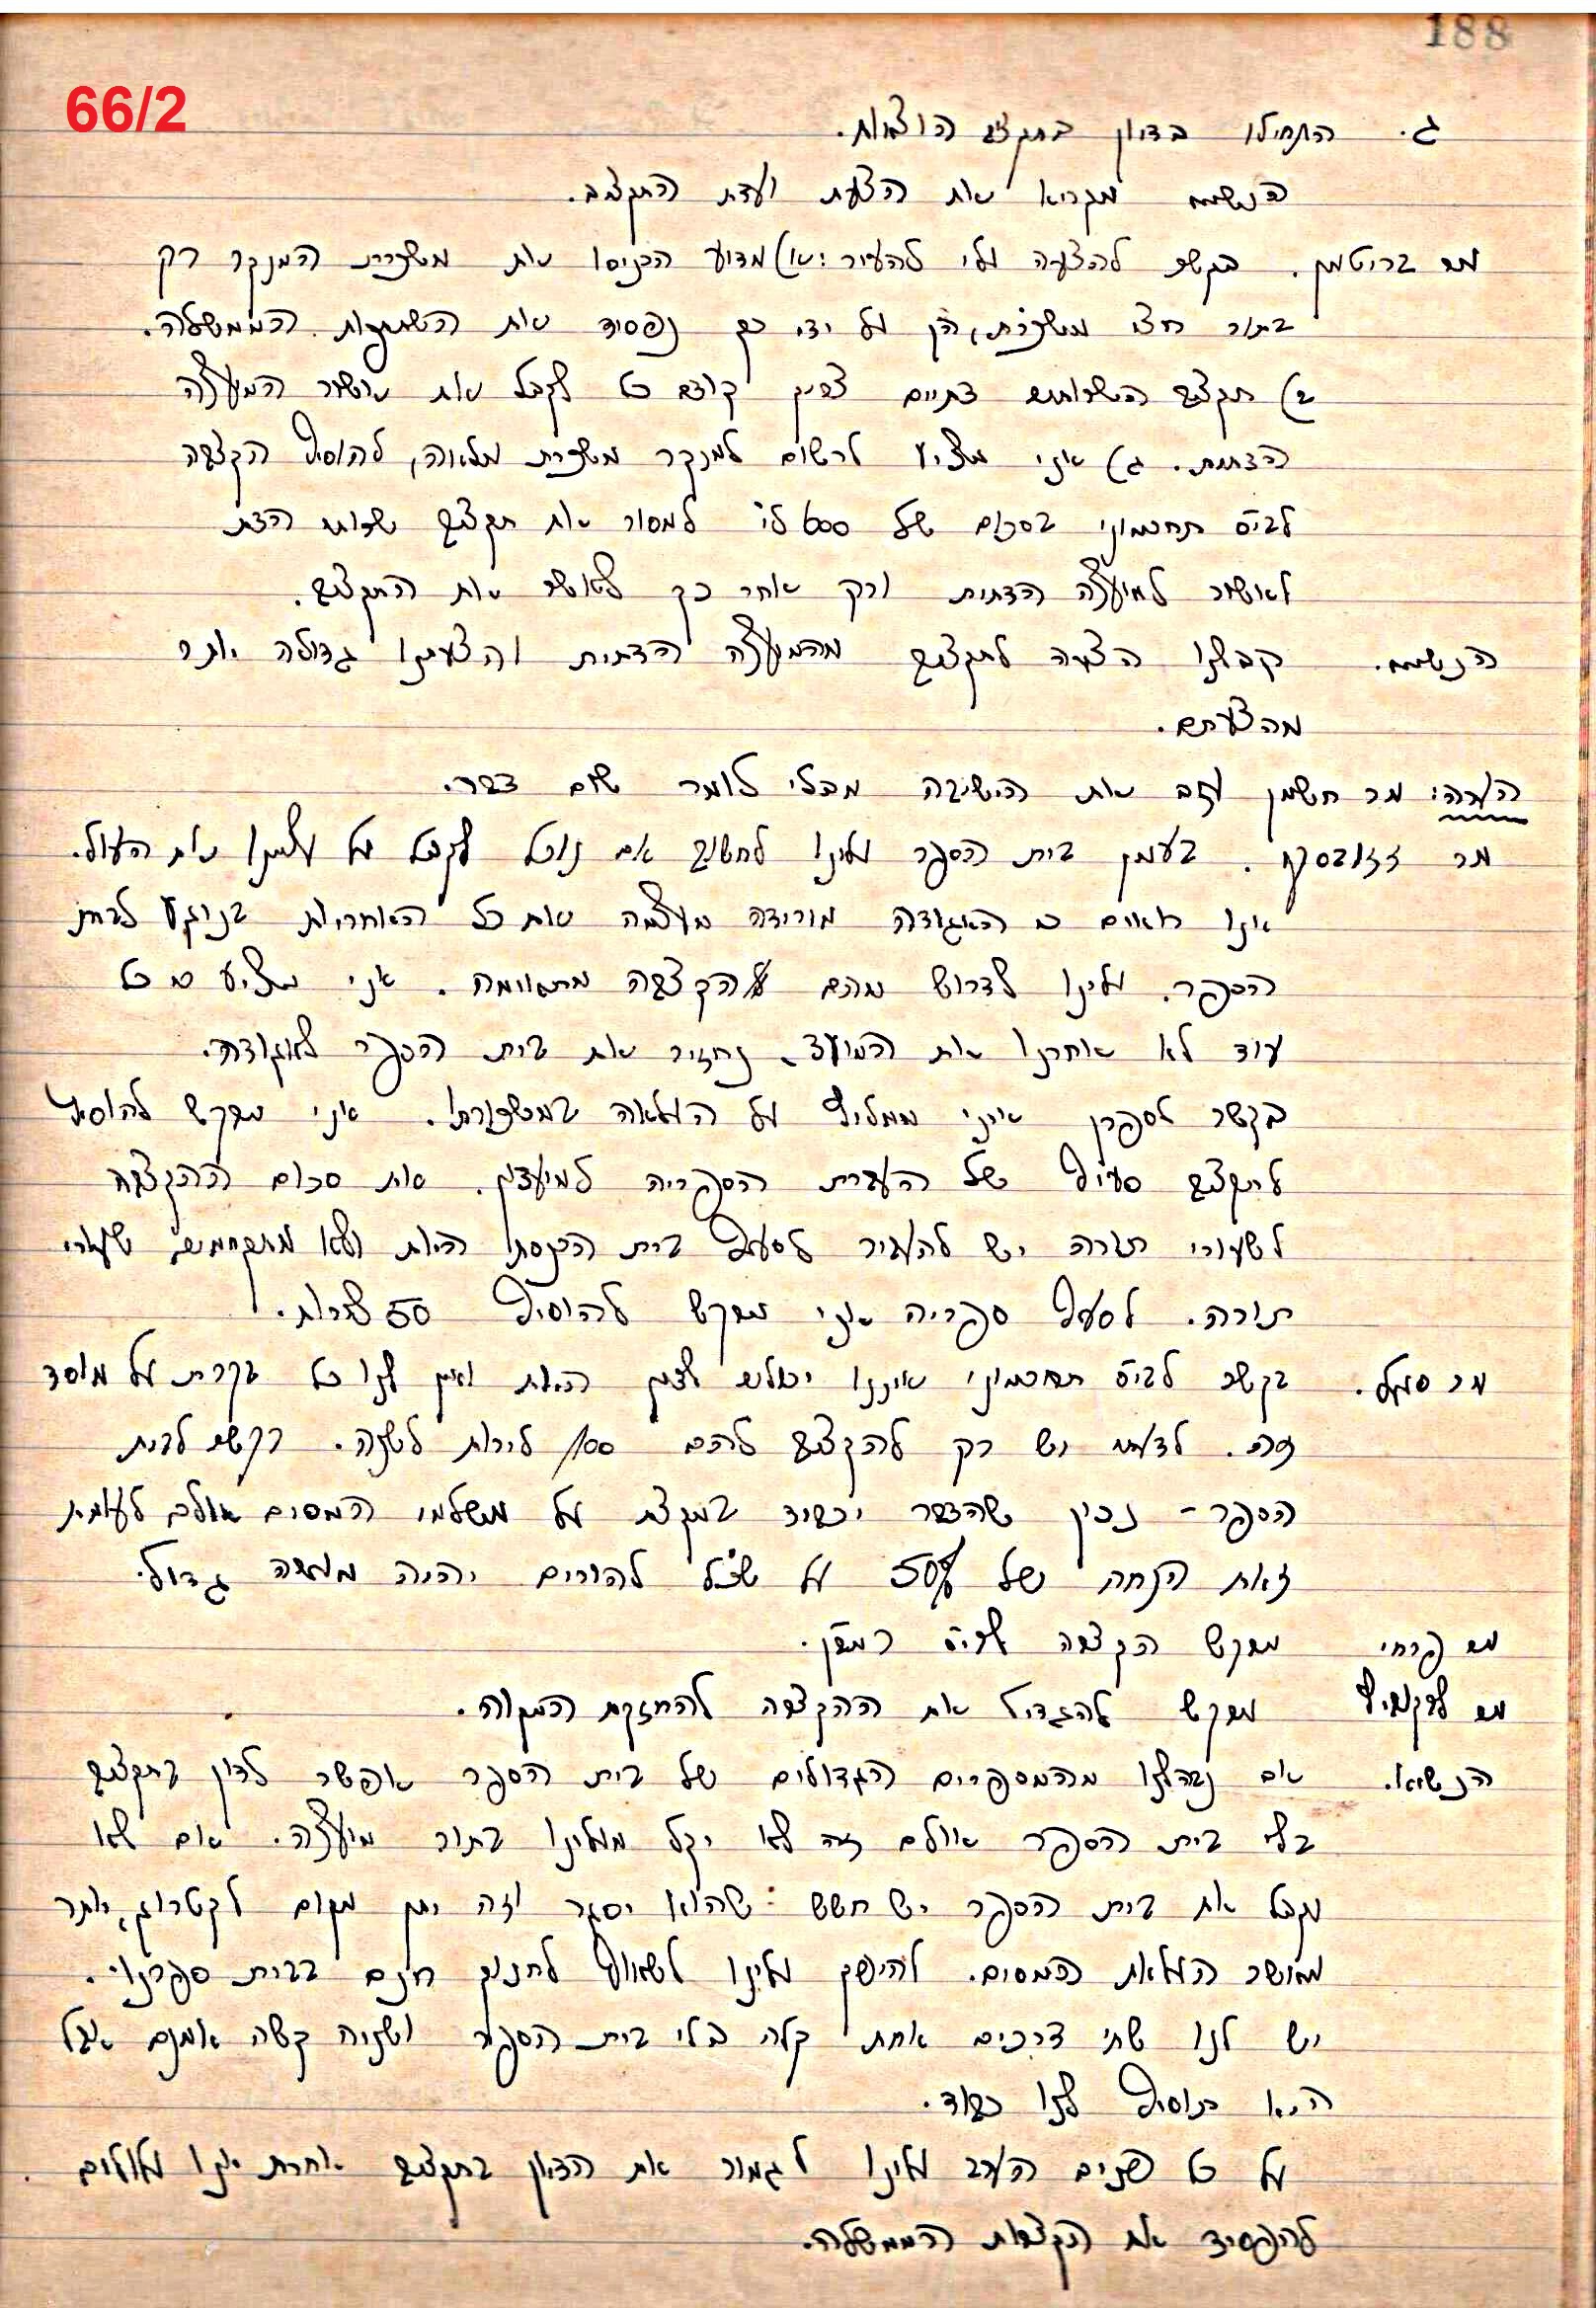 188
66/2
ג. התחילו בדיון בתקציב הוצאות.
הנשיא מקריא את הצעת ועדת התקציב.
מר ברויטמן. בקשר להצעה עלי להעיר: א) מדוע הכניסו את משכורת המנקר רק
בתור חצי משכורת, הן על ידי כך נפסיד את השתתפות הממשלה.
ב) תקציב השרותים דתיים צריך קודם כל לקבל את אישור המועצה
הדתית. ג) אני מציע לרשום למנקר משכורת מלאה, להוסיף הקצבה
לבי"ס תחכמוני בסכום של 600 לי' למסור את תקציב שרותי הדת
לאישור למועצה הדתית ורק אחר כך לאשר את התקציב.
הנשיא. קבלנו הצעה לתקציב מהמועצה הדתית והצענו גדולה יותר
מהצעתם.
הערה: מר חשמן עזב את הישיבה מבלי לומר שום דבר.
מר בעניין בית הספר עלינו לחשוב אם נוכל לקבל על עצמנו את העול.
אנו רואים כי האגודה מורידה מעצמה את כל האחריות בנוגע לבית
הספר. עלינו לדרוש מהם הקצבה מתאימה. אני מציע כי כל
עוד לא אחרנו את המועד, נחזיר את בית הספר לאגודה.
בקשר לספרן אינני ממליץ על העלאה במשכורתו. אני מבקש להוסיף
לתקציב סעיף של העברת הספריה למועדון. את סכום ההקצבה
לשעורי תורה יש להעביר לסעיף בית הכנסת היות ולא מתקיימים שעורי
תורה. לסעיף ספריה אני מבקש להוסיף 50 לירות.
מר בקשר לבי"ס תחכמוני איננו יכולים לציין היות ואין לנו כל בקרת על מוסד
זה. לדעתי יש רק להקציב להם 100 לירות לשנה. בקשר לבית
הספר - נכון שהדבר יכביד במקצת על משלמי המסים אולם לעומת
זאת הנחה של 50% על שכ"ל להורים יהיה מעשה גדול.
מר פרחי מבקש הקצבה לבי"ס רמב"ן.
מר מבקש להגדיל את ההקצבה להחזקת המקוה.
הנשיא. אם נבהלנו מהמספרים הגדולים של בית הספר אפשר לדון בתקציב
בלי בית הספר אולם זה לא יקל מעלינו בתור מועצה. אם לא
נקבל את בית הספר יש חשש שהוא יסגר וזה יתן מקום לקטרוג, יותר
מאשר העלאת המסים. להיפך עלינו לשאוף לחנוך חינם בבית ספרנו.
יש לנו שתי דרכים אחת קלה בלי בית הספר ושניה קשה אמנם אבל
היא תוסיף לנו כבוד.
על כל פנים הערב עלינו לגמור את הדיון בתקציב אחרת אנו עלולים
להפסיד את הקצבות הממשלה.